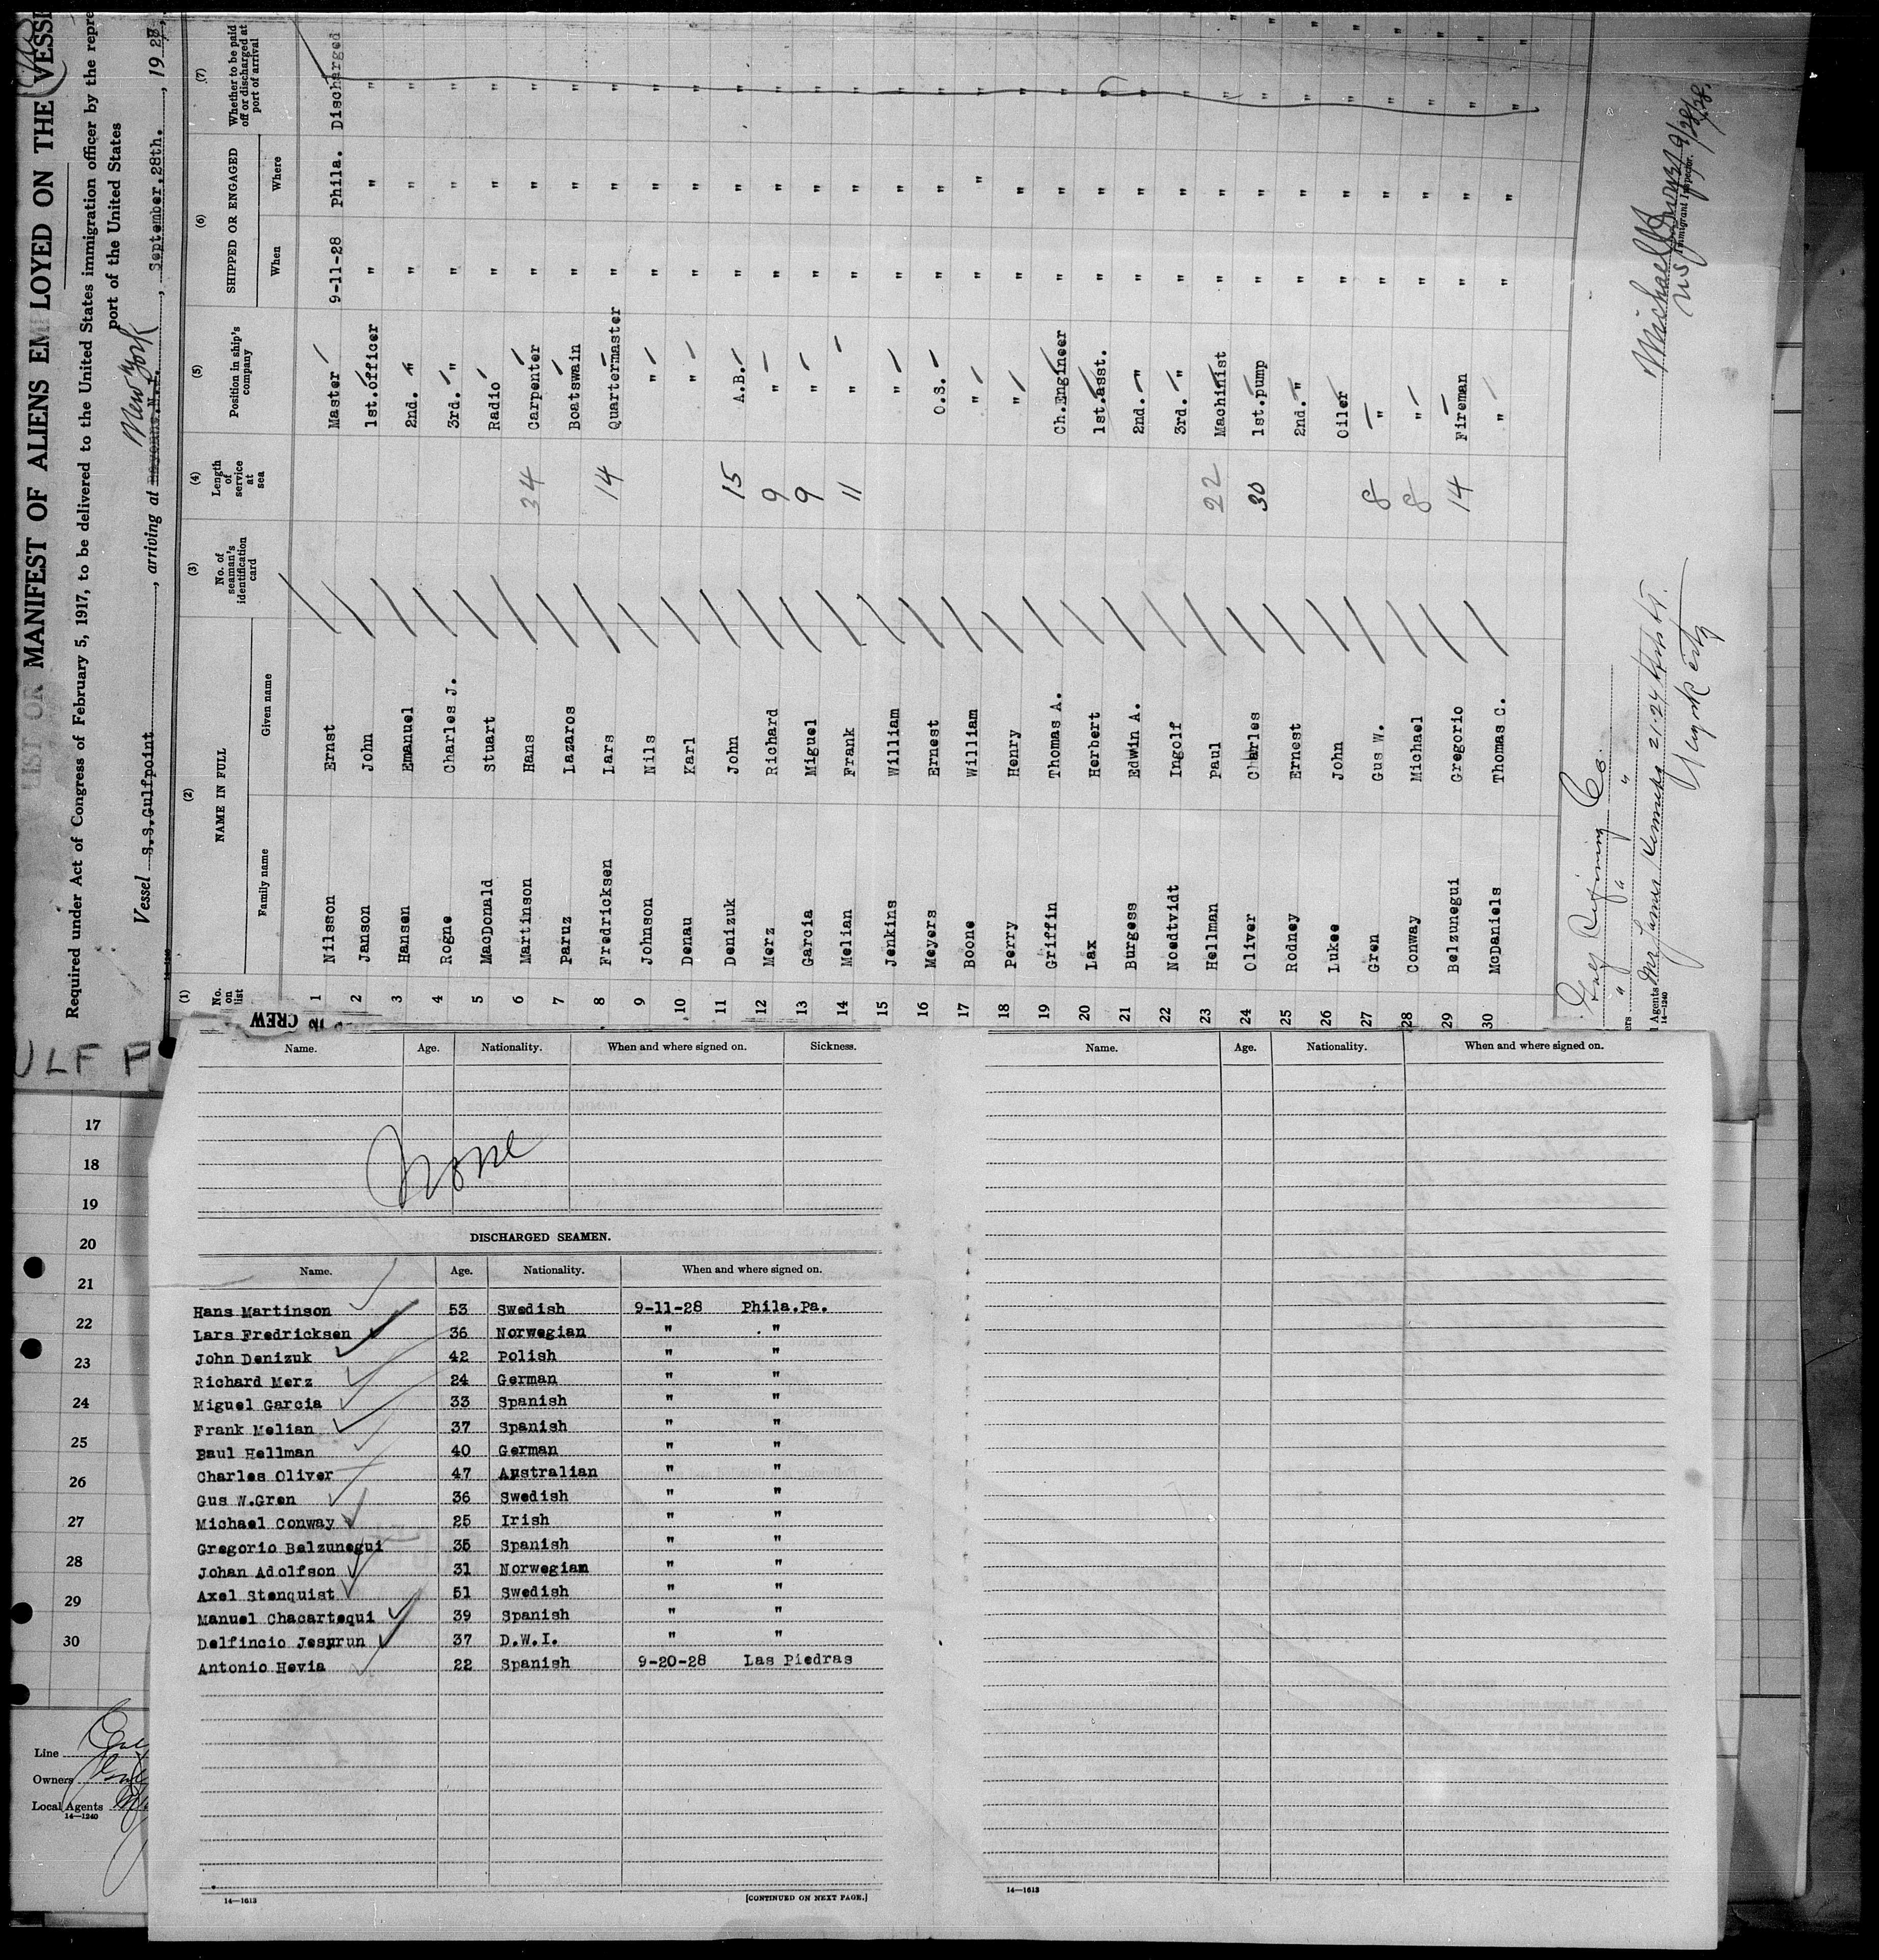 LIST OR MANIFEST OF ALIENS EMPLOYED ON THE VESS
Required under Act of Congress of February 5, 1917, to be delivered to the United States immigration officer by the repre
port of the United States
Vessel S.S.Gulfpoint, arriving at Bayonne.N.J. New York, September.28th., 1928,
(1) (2) (3) (4) (5) (6) (7)
No. on list NAME IN FULL No. of seaman's identification card Length of service at sea Position in ship's company SHIPPED OR ENGAGED Whether to be paid off or discharged at port of arrival
Family name Given name When Where
1 Nilsson Ernst Master 9-11-28 Phila. Discharged
2 Janson John 1st.officer " " "
3 Hansen Emanuel 2nd. " " " "
4 Rogne Charles J. 3rd. " " " "
5 MacDonald Stuart Radio " " "
6 Martinson Hans 34 Carpenter " " "
7 Paruz Lazaros Boatswain " " "
8 Fredricksen Lars 14 Quartermaster " " "
9 Johnson Nils " " " "
10 Denau Karl " " " "
11 Denizuk John 15 A.B. " " "
12 Merz Richard 9 " " " "
13 Garcia Miguel 9 " " " "
14 Melian Frank 11 " " " "
15 Jenkins William " " " "
16 Meyers Ernest O.S. " " "
17 Boone William " " " "
18 Perry Henry " " " "
19 Griffin Thomas A. Ch.Engineer " " "
20 Lax Herbert 1st.asst. " " "
21 Burgess Edwin A. 2nd. " " " "
22 Noedtvidt Ingolf 3rd. " " " "
23 Hellman Paul 22 Machinist " " "
24 Oliver Charles 30 1st.pump " " "
25 Rodney Ernest 2nd. " " " "
26 Lukee John Oiler " " "
27 Gren Gus W. 8 " " " "
28 Conway Michael 8 " " " "
29 Belzunegui Gregorio 14 Fireman " " "
30 McDaniels Thomas C. " " " "
Refining Co.
ers " " " "
l Agents Mr James Kennedy 21-24
York City
14-1240
Michael 9/28/28.
Immigrant Inspector.
CREW
ULF P
17
18
19
20
21
22
23
24
25
26
27
28
29
30
Line
Owners
Local Agents
14—1240
Name. Age. Nationality. When and where signed on. Sickness.
None
DISCHARGED SEAMEN.
Name. Age. Nationality. When and where signed on.
Hans Martinson 53 Swedish 9-11-28 Phila.Pa.
Lars Fredricksen 36 Norwegian " "
John Denizuk 42 Polish " "
Richard Merz 24 German " "
Miguel Garcia 33 Spanish " "
Frank Melian 37 Spanish " "
Paul Hellman 40 German " "
Charles Oliver 47 Australian " "
Gus W.Gren 36 Swedish " "
Michael Conway 25 Irish " "
Gregorio Belzunegui 35 Spanish " "
Johan Adolfson 31 Norwegian " "
Axel Stenquist 51 Swedish " "
Manuel Chacartequi 39 Spanish " "
Delfincio Jesyrun 37 D.W.I. " "
Antonio Hevia 22 Spanish 9-20-28 Las Piedras
14—1613
[CONTINUED ON NEXT PAGE.]
Name. Age. Nationality. When and where signed on.
14—1613